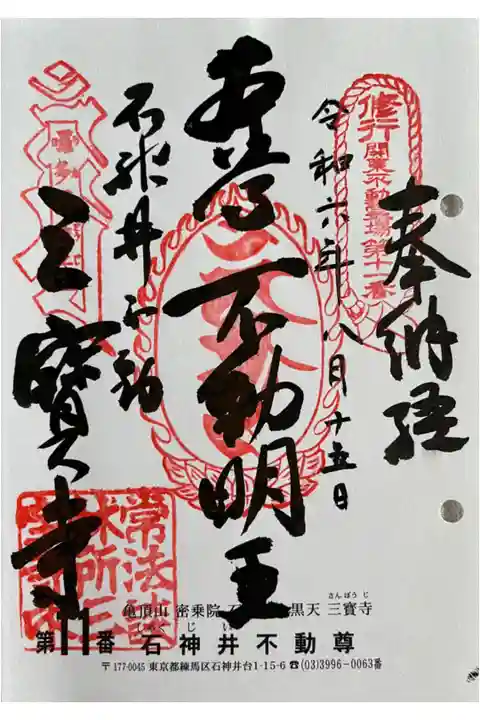 奉納経
修行
関東不動霊場第十一番
令和六年八月十五日
本尊
不動明王
石神井不動
三寳寺
亀頂山 密乗院
黒天 三寳寺
さんぽうじ
第11番 石神井不動尊
〒177-0045 東京都練馬区石神井台1-15-6 ☎(03)3996-0063番